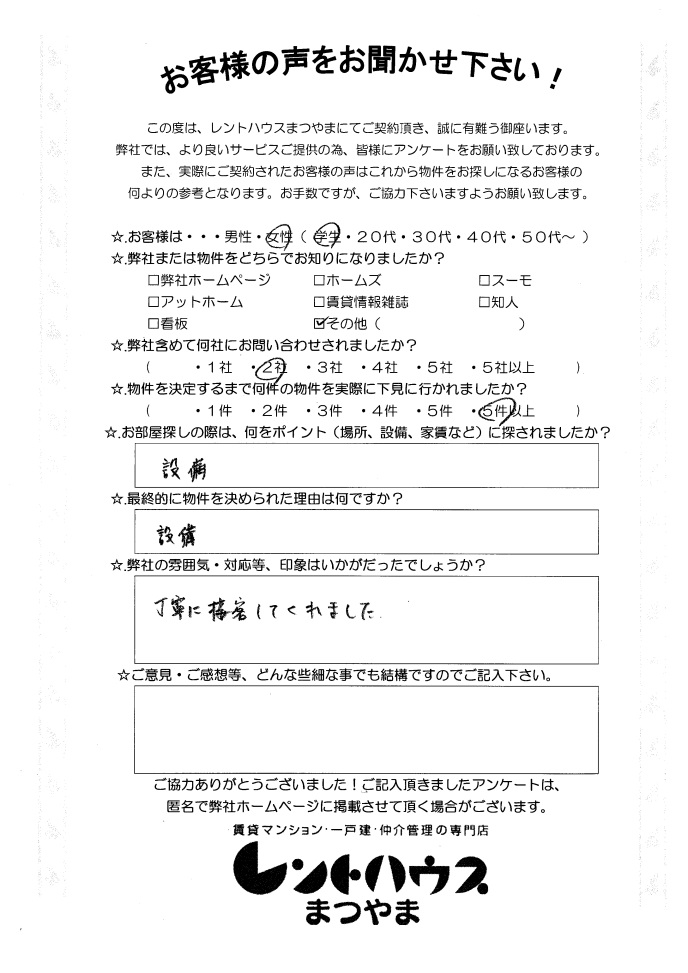 お客様の声をお聞かせ下さい！
この度は、レントハウスまつやまにてご契約頂き、誠に有難う御座います。
弊社では、より良いサービスご提供の為、皆様にアンケートをお願い致しております。
また、実際にご契約されたお客様の声はこれから物件をお探しになるお客様の
何よりの参考となります。お手数ですが、ご協力下さいますようお願い致します。
☆.お客様は・・・男性・女性（ 学生・２０代・３０代・４０代・５０代～ ）
☆.弊社または物件をどちらでお知りになりましたか？
□弊社ホームページ □ホームズ □スーモ
□アットホーム □賃貸情報雑誌 □知人
□看板 ☑その他（ ）
☆.弊社含めて何社にお問い合わせされましたか？
（ ・１社 ・２社 ・３社 ・４社 ・５社 ・５社以上 ）
☆.物件を決定するまで何件の物件を実際に下見に行かれましたか？
（ ・１件 ・２件 ・３件 ・４件 ・５件 ・５件以上 ）
☆.お部屋探しの際は、何をポイント（場所、設備、家賃など）に探されましたか？
設備
☆.最終的に物件を決められた理由は何ですか？
設備
☆.弊社の雰囲気・対応等、印象はいかがだったでしょうか？
丁寧に接客してくれました.
☆ご意見・ご感想等、どんな些細な事でも結構ですのでご記入下さい。
ご協力ありがとうございました！ご記入頂きましたアンケートは、
匿名で弊社ホームページに掲載させて頂く場合がございます。
賃貸マンション・一戸建・仲介管理の専門店
レントハウス
まつやま